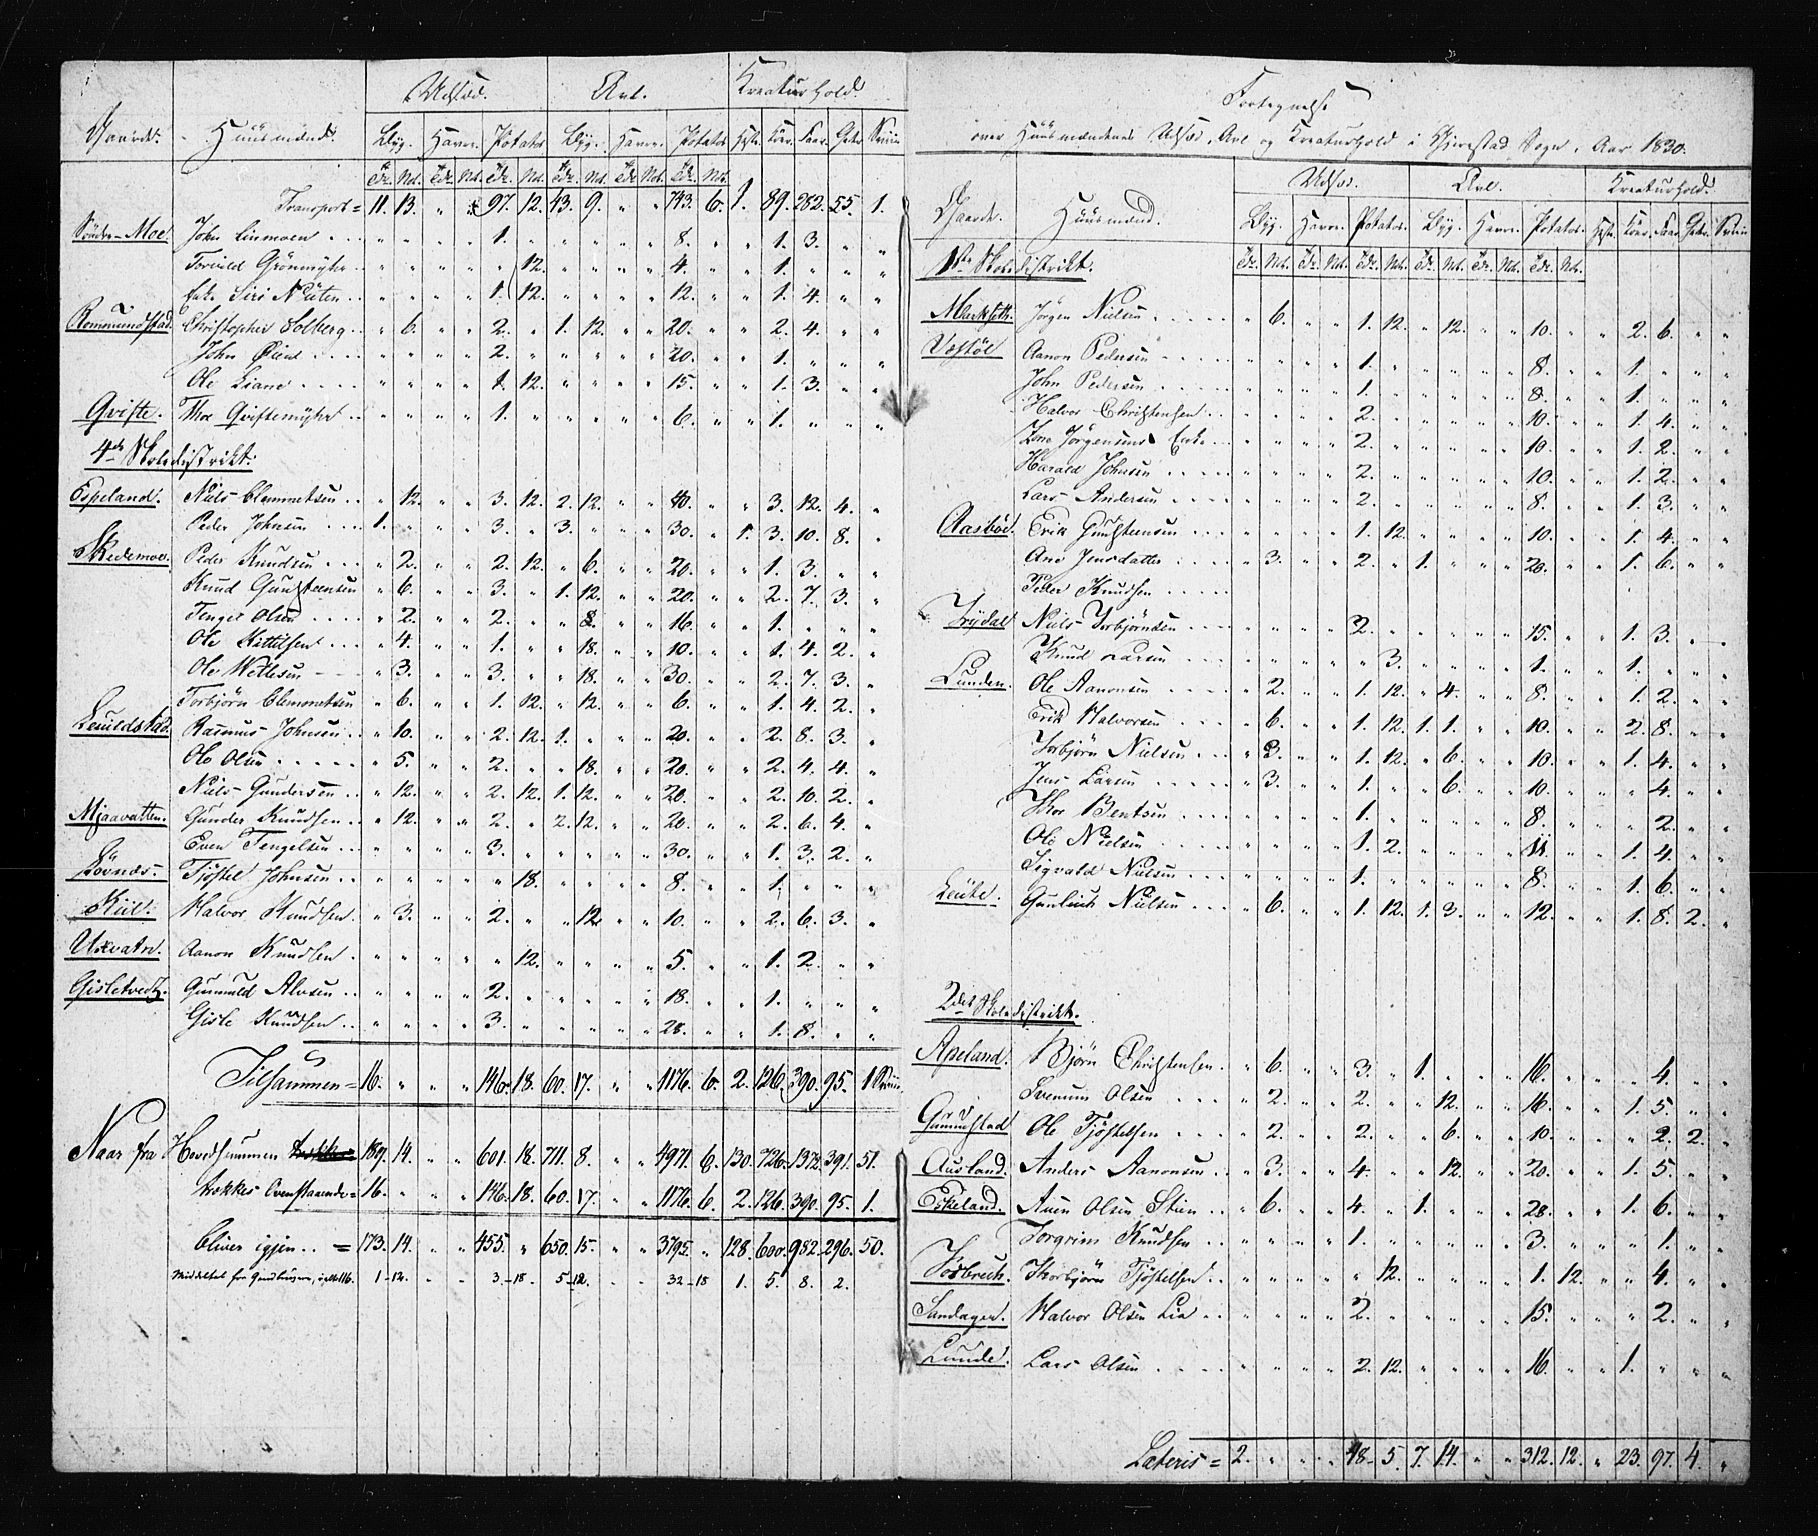 Udsæd. Avl. Kreaturhold.
Gaarde. Huusmænd. Byg. Havre. Potatos Byg. Havre. Potatos Heste. Kiør. Faar. Geder. Sviin
Tdr. Mk. Tdr. Mk. Tdr. Mk. Tdr. Mk. Tdr. Mk. Tdr. Mk.
Transport = 11. 13. " " 97. 12. 43. 9. " " 743. 6. 1. 89. 282. 55. 1.
Søndre-Moe. John Linmoen . . " " " " 1. " " " " " 8. " " 1. 3. " "
Torvild Grönmyhr . . " " " " " 12. " " " " 4. " " 1. " " "
Enke Siri Nüten . . " " " " 1. 12. " " " " 12. " " 1. 4. " "
Rommundstad. Christopher Solberg . . " 6. " " 2. " 1. 12. " " 20. " " 2. 4. " "
John Öiene . . . . " " " " 2. " " " " " 20. " " 1. " " "
Ole Liane . . . . " " " " 1. 12. " " " " 15. " " 1. 3. " "
Qvifte. Thor Qviftemyhr . . " " " " 1. " " " " " 6. " " 1. " " "
4de Skoledistrikt:
Espeland. Niels Clemmetsen . . " 12. " " 3. 12. 2. 12. " " 40. " " 3. 12. 4. "
Peder Johnsen . . . 1. " " " 3. " 3. " " " 30. " 1. 3. 10. 8. "
Skedemoe. Peder Knudsen . . . " 2. " " 2. 12. " 6. " " 20. " " 1. 3. " "
Knud Gundstensen " 6. " " 3. " 1. 12. " " 20. " " 2. 7. 3. "
Tenger Olsen . . . . " 2. " " 2. " " 8. " " 16. " " 1. " " "
Ole Kittilsen . . . " 4. " " 1. " " 18. " " 10. " " 1. 4. 2. "
Ole Wetlesen . . . " 3. " " 3. " " 18. " " 30. " " 2. 7. 3. "
Torbjörn Clemmetsen " 6. " " 1. 12. " 12. " " 6. " " 1. 4. 2. "
Leuildstad. Rasmus Johnsen . . " 10. " " 2. 12. 1. " " " 20. " " 2. 8. 3. "
Ole Olsen . . . . . " 5. " " 2. " " 18. " " 20. " " 2. 4. 4. "
Niels Gundersen . . " 12. " " 2. 12. 1. 12. " " 20. " " 2. 10. 2. "
Mjaavatten. Gunder Knudsen . . " 12. " " 2. " 2. 12. " " 20. " " 2. 6. 4. "
Even Tengelsen . . " " " " 3. " " " " " 30. " " 1. 3. 2. "
Lövnæs. Tjöstel Johnsen . . " " " " " 18. " " " " 8. " " 1. " " "
Kiil. Halvor Knudsen . " 3. " " 2. " " 12. " " 10. " " 2. 6. 3. "
Uxvatn. Aanon Knudsen . " " " " " 12. " " " " 5. " " 1. 2. " "
Gisletvedt. Gunnuld Alvsen . . " " " " 2. " " " " " 18. " " 1. " " "
Gisle Knudsen . . " " " " 3. " " " " " 28. " " 1. 8. " "
Tilsammen = 16. " " " 146. 18. 60. 17. " " 1176. 6. 2. 126. 390. 95. 1 Sviin
Naar fra Hovedsummen 189. 14. " " 601. 18. 711. 8. " " 4971. 6. 130. 726. 1372. 391. 51.
trækkes Ovenstaaende = 16. " " " 146. 18. 60. 17. " " 1176. 6. 2. 126. 390. 95. 1.
bliver igjen . . = 173. 14. " " 455. " 650. 15. " " 3795. " 128. 600. 982. 296. 50.
Middeltal for Gaardbrugere, i alt 116. 1 - 12. " " 3. - 18 5 - 12. " " 32 - 18 1. 5. 8. 2.
Fortegnelse
over Huusmændenes Udsæd, Avl og Kreaturhold i Gjerestad Sogn, Aar 1830.
Udsæd. Avl. Kreaturhold.
Gaarde. Huusmænd. Byg. Havre. Potatos. Byg. Havre. Potatos. Heste. Kiør. Faar. Geder. Sviin
1ste Skoledistrikt. Tdr. Mk. Tdr. Mk. Tdr. Mk. Tdr. Mk. Tdr. Mk. Tdr. Mk.
Marksæth. Jörgen Nielsen . . . . . " 6. " " 1. 12. " 12. " " 10. " " 2. 6. " "
Vestöl Aanon Pedersen . . . . " " " " 1. " " " " " 8. " " 1. " " "
John Pedersen . . . . . " " " " 1. " " " " " 8. " " 1. " " "
Halvor Christensen . . " " " " 2. " " " " " 10. " " 1. 4. " "
Jörgensens Enke . . " " " " 2. " " " " " 10. " " 1. 2. " "
Harald Johnsen . . . . " " " " 2. " " " " " 10. " " 1. 2. " "
Lars Andersen . . . . . " " " " 2. " " " " " 8. " " 1. 3. " "
Aasböe. Erik Gundstensen . . . . " " " " 1. 12. " " " " 10. " " 1. 4. " "
Ane Jensdatter . . . . " 3. " " 2. " 1. " " " 20. " " 1. 6. " "
Peder Knudsen . . . . .
Trydal Niels Torbjörnsen . . . " " " " 2. " " " " " 15. " " 1. 3. " "
Knud Larsen . . . . . " " " " " 3. " " " " 1. " " 1. " " "
Lunden. Ole Aanonsen . . . . . " 2. " " 1. 12. " 4. " " 8. " " 1. 2. " "
Erik Halvorsen . . . . " 6. " " 1. 12. 1. 1. " " 10. " " 2. 8. " "
Torbjörn Nielsen . . . " 3. " " 1. 12. " 6. " " 10. " " 1. 4. " "
Jens Larsen . . . . . . " 3. " " 1. " " 6. " " 10. " " " 4. " "
Thor Bentsen . . . . . " " " " 1. " " " " " 8. " " " 2. " "
Ole Nielsen . . . . . . " " " " 1. 2. " " " " 11. " " 1. 4. " "
Sigvald Nielsen . . . . " " " " 1. " " " " " 8. " " 1. 6. " "
Leüte. Gunleik Nielsen . . . " 6. " " 1. 12. 1. 3. " " 12. " " 1. 8. 2. "
2det Skoledistrikt.
Apeland. Björn Christensen . " 6. " " 3. " 1. " " " 16. " " " 4. " "
Svenum Olsen . . . . " 2. " " 2. " " 12. " " 16. " " 1. 5. " "
Grunnestad Ole Tjöstelsen . . . . " 2. " " 2. " " 6. " " 10. " " " 2. 2. "
Ausland. Anders Aanonsen . . " 3. " " 4. " " 12. " " 20. " " 1. 5. " "
Eskeland. Auen Olsen Stien . . " 6. " " 4. " 1. " " " 28. " " 1. 6. " "
Torgrim Knudsen " " " " 1. " " " " " 3. " " " 1. " "
Thorbjörn Tjöstelsen . . " " " " " 12. " " " " 1. 12. " " 4. " "
Sandager. Halvor Olsen Lia . . " " " " 2. " " " " " 15. " " " 2. " "
Lunde. Lars Olsen . . . . " " " " 2. 12. " " " " 16. " " 1. " " "
Lateris = 2. " " " 48. 5. 7. 14. " " 312. 12. " 23. 97. 4. "